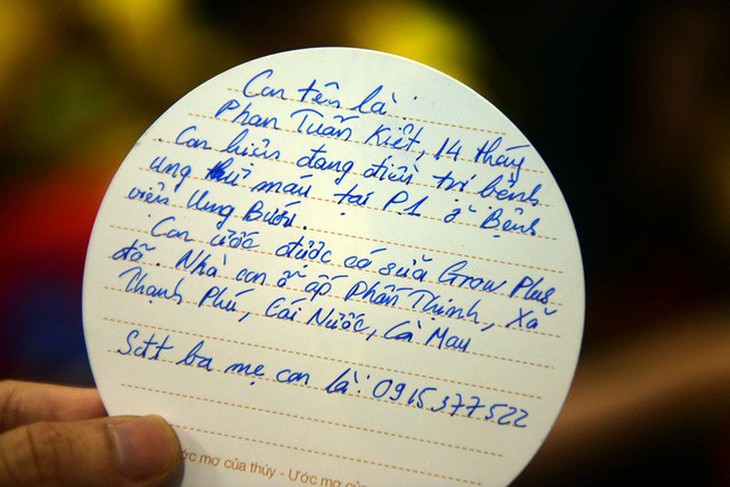 Con tên là :
Phan Tuấn Kiệt, 14 tháy
. Con hiện đang điều trị bệnh
ung thư máu tại P.1 ở Bệnh
viện Ung Bướu.
Con ước được có sữa Grow Plus
đỏ. Nhà con ở ấp Phấn Thinh, Xã
Thạnh Phú, Cái Nước, Cà Mau
Sđt ba mẹ con là: 0915377522
ớc mơ của thúy - Ước mơ củ